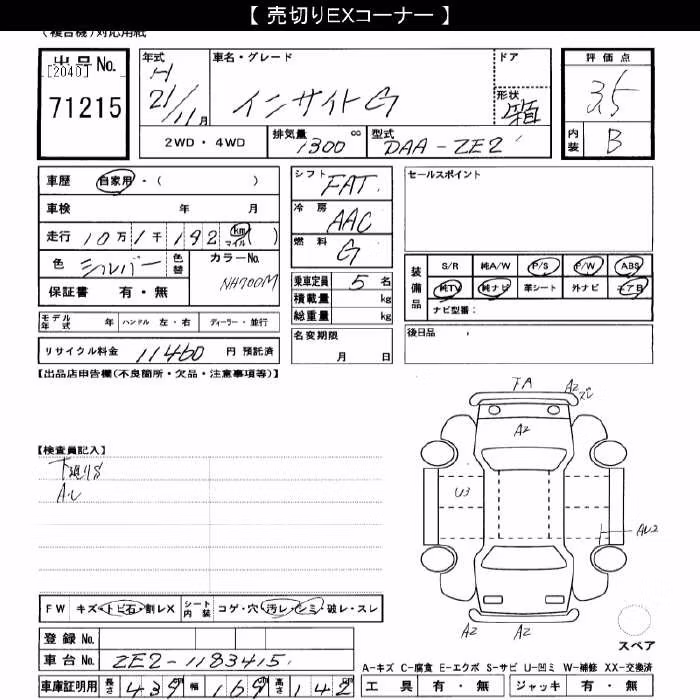 【 売切りEXコーナー 】
(複合機)対応用紙
出品No.
[2040]
71215
年式
H
21/11月
車名・グレード
インサイト G
ドア
形状
箱
評価点
3.5
内装
B
2WD・4WD
排気量 1300 cc
型式 DAA-ZE2
車歴 自家用・( )
車検 年 月
走行 10万1千192 km マイル ( )
色 シルバー
色替
カラーNo. NH700M
保証書 有・無
シフト FAT
冷房 AAC
燃料 G
乗車定員 5 名
積載量 kg
総重量 kg
セールスポイント
装備品
S/R 純A/W P/S P/W ABS
純TV 純ナビ 革シート 外ナビ エアB
ナビ型番:
モデル年式 年 ハンドル 左・右 ディーラー・並行
名変期限
月 日
後日品
リサイクル料金 11460 円 預託済
【出品店申告欄(不良箇所・欠品・注意事項等)】
FA
A2
A2
U3
AU2
A2
A2
【検査員記入】
下廻りS
A.U
FW キズ・トビ石・割レX
シート内装 コゲ・穴・汚レ・シミ・破レ・スレ
登録No.
車台No. ZE2-1183415
車庫証明用 長さ 439 幅 169 高さ 142
スペア
A-キズ C-腐食 E-エクボ S-サビ U-凹ミ W-補修 XX-交換済
工具 有・無 ジャッキ 有・無